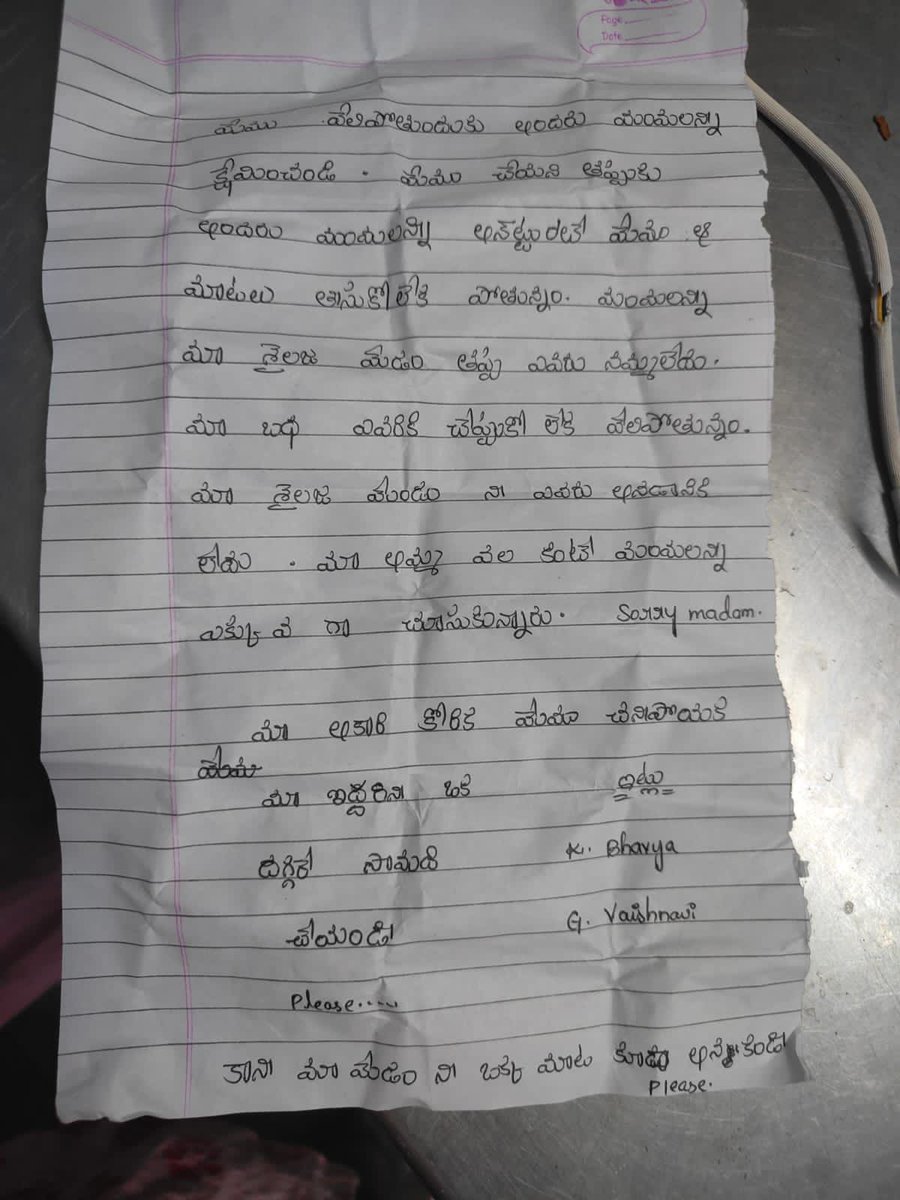 Page
Date
మేము వెలిపోతుందుకు అందరు మంమలన్ని
క్షేమించండి . మేము చేయని తప్పుకు
అందరు మంమలన్ని అనట్టుంటే మేము ఆ
మాటలు తీసుకోలేక పోతున్నం. మంమలన్ని
మా శైలజ మేడం తప్ప ఎవరు నమ్మలేదు.
మా బాధ ఎవరికి చెప్పుకో లేక వెలిపోతున్నం.
మా శైలజ మేండం ని ఎవరు అనడానికి
లేదు . మా అమ్మ వల కంటే మంమలన్ని
ఎక్కువ గా చూసుకున్నారు. Sorry madam.
మా ఆకారి కోరిక మేము చనిపోయకె
మా ఇద్దరిని ఒకె ఇట్లు
దగ్గిరే సామది K. Bhavya
చేయండి G. Vaishnavi
Please.....
కాని మా మేడం ని ఒక్క మాట కూడా అనకండి
Please.